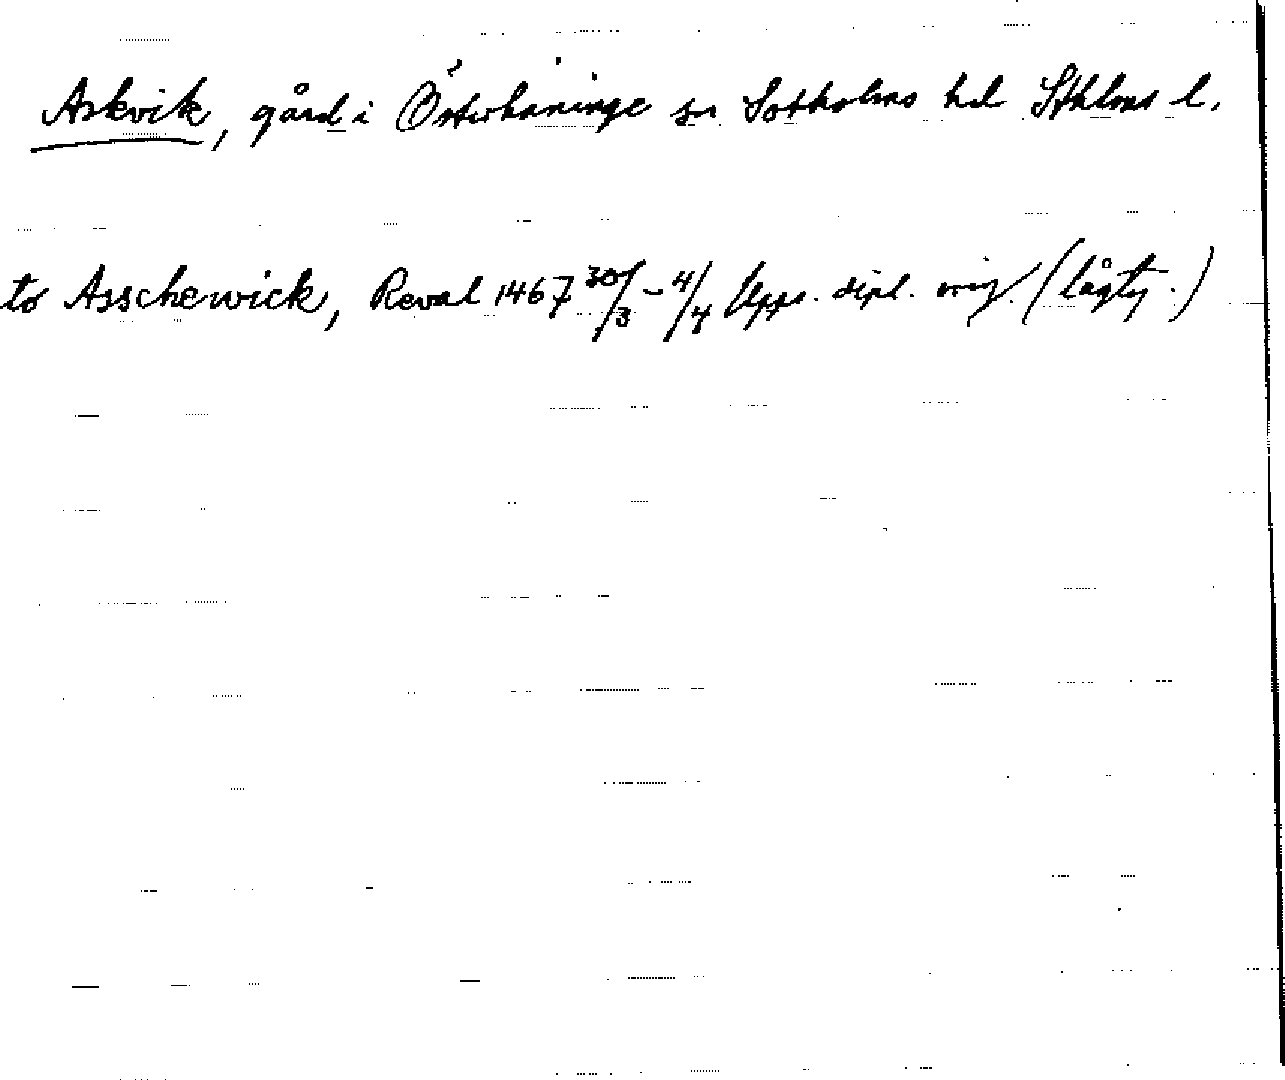 Askvik, gård i Österhaninge sn Sotholms hd Sthlms l.
to Asschewick, Reval 1467 30/3 – 4/4 Upps. dipl. orig. (lågty.)